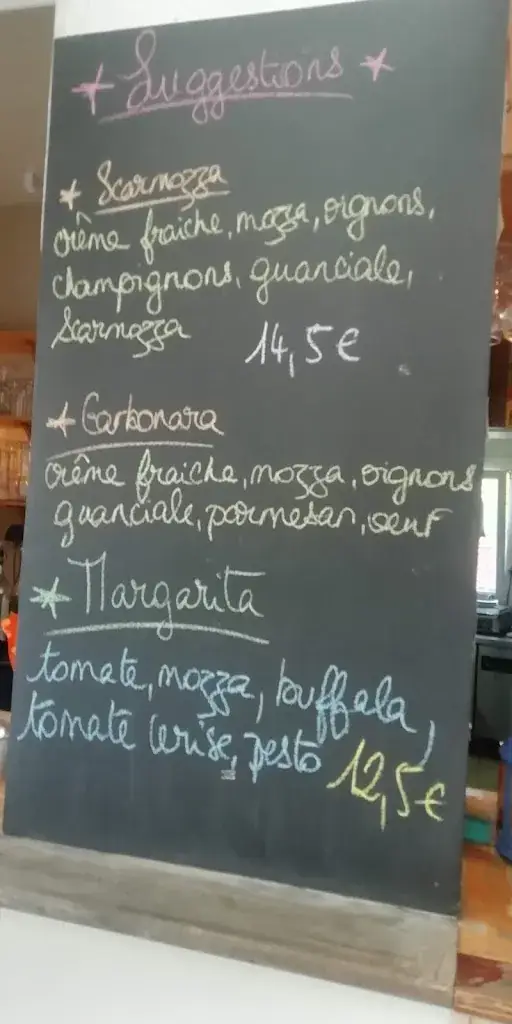 Suggestions
Scarmozza
crême fraiche, mozza, oignons,
champignons, guanciale,
Scarmozza 14,5€
Carbonara
crême fraiche, mozza, oignons
guanciale, parmesan, oeuf
Margarita
tomate, mozza, buffala,
tomate cerise, pesto 12,5€